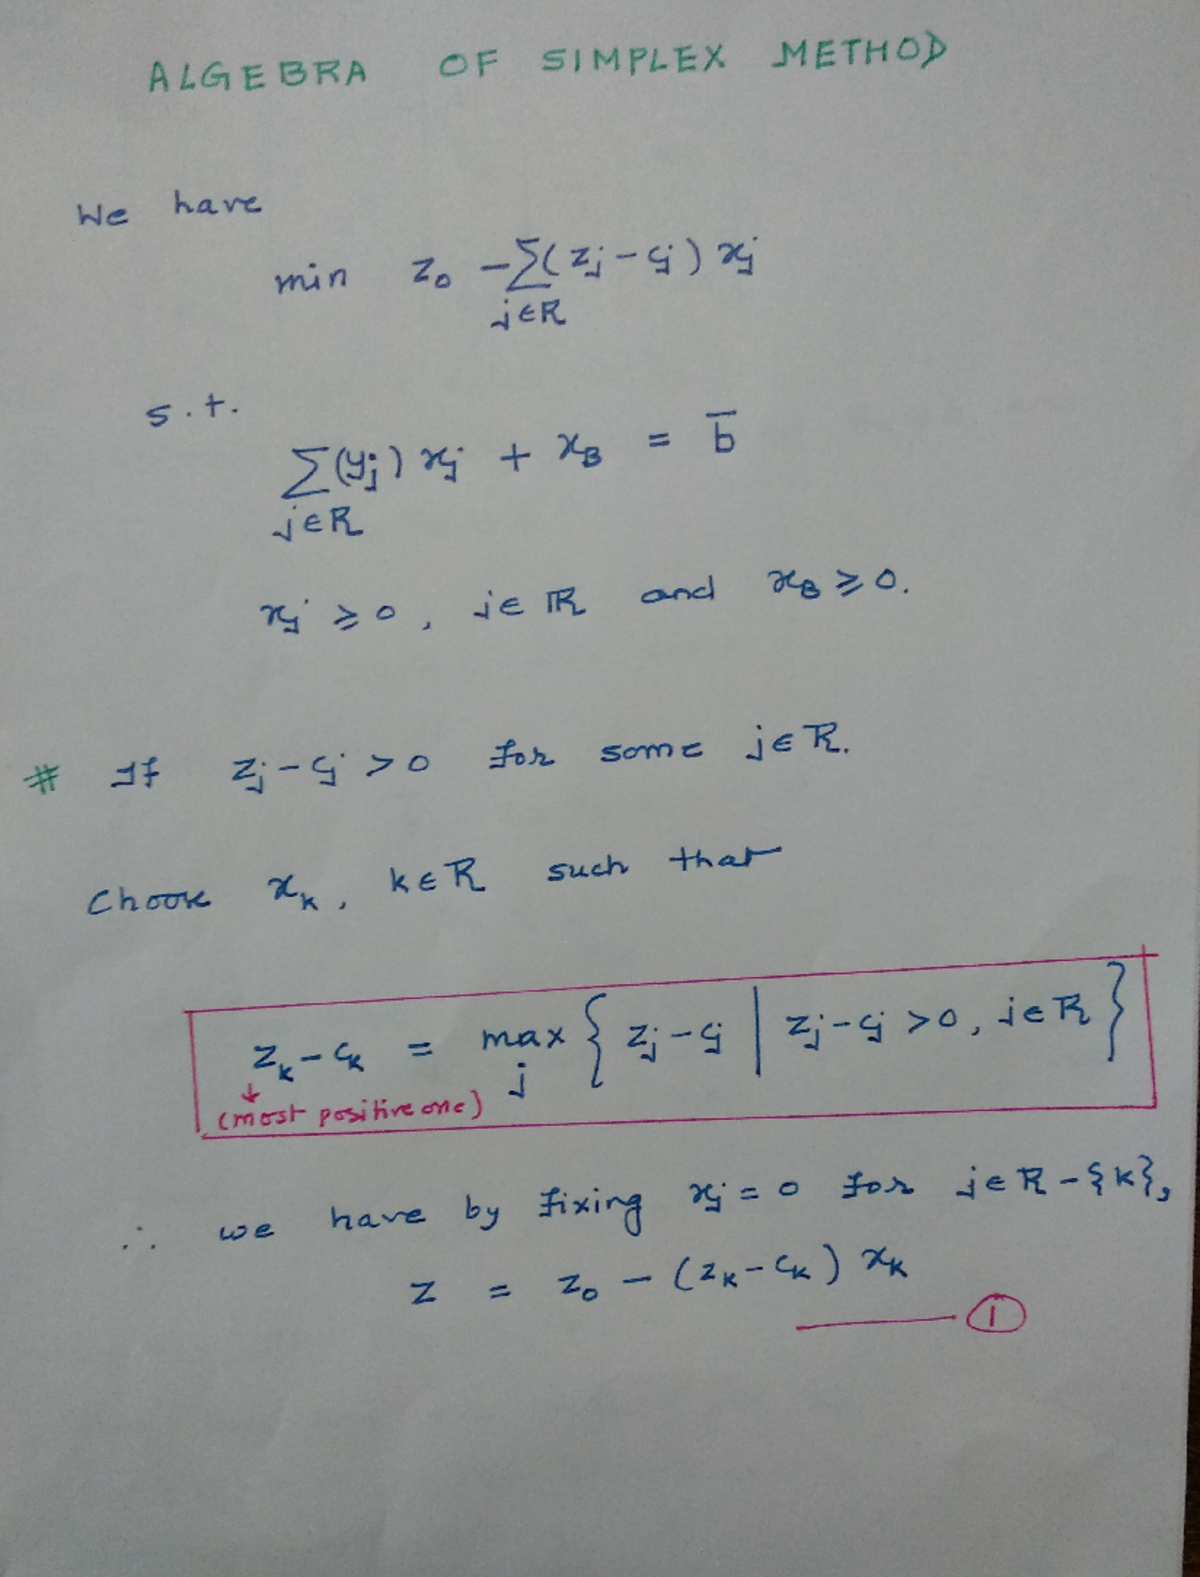 ALGEBRA OF SIMPLEX METHOD
We have
min z₀ - ∑ (zⱼ - cⱼ) xⱼ
j∈R
s.t.
∑ (yⱼ) xⱼ + x_B = b̅
j∈R
xⱼ ⩾ 0, j∈R and x_B ⩾ 0.
# If zⱼ - cⱼ > 0 for some j∈R.
Choose xₖ, k∈R such that
zₖ - cₖ = max { zⱼ - cⱼ | zⱼ - cⱼ > 0, j∈R }
j
↓
(most positive one)
∴ we have by fixing xⱼ = 0 for j∈R - {k},
z = z₀ - (zₖ - cₖ) xₖ
—— ①